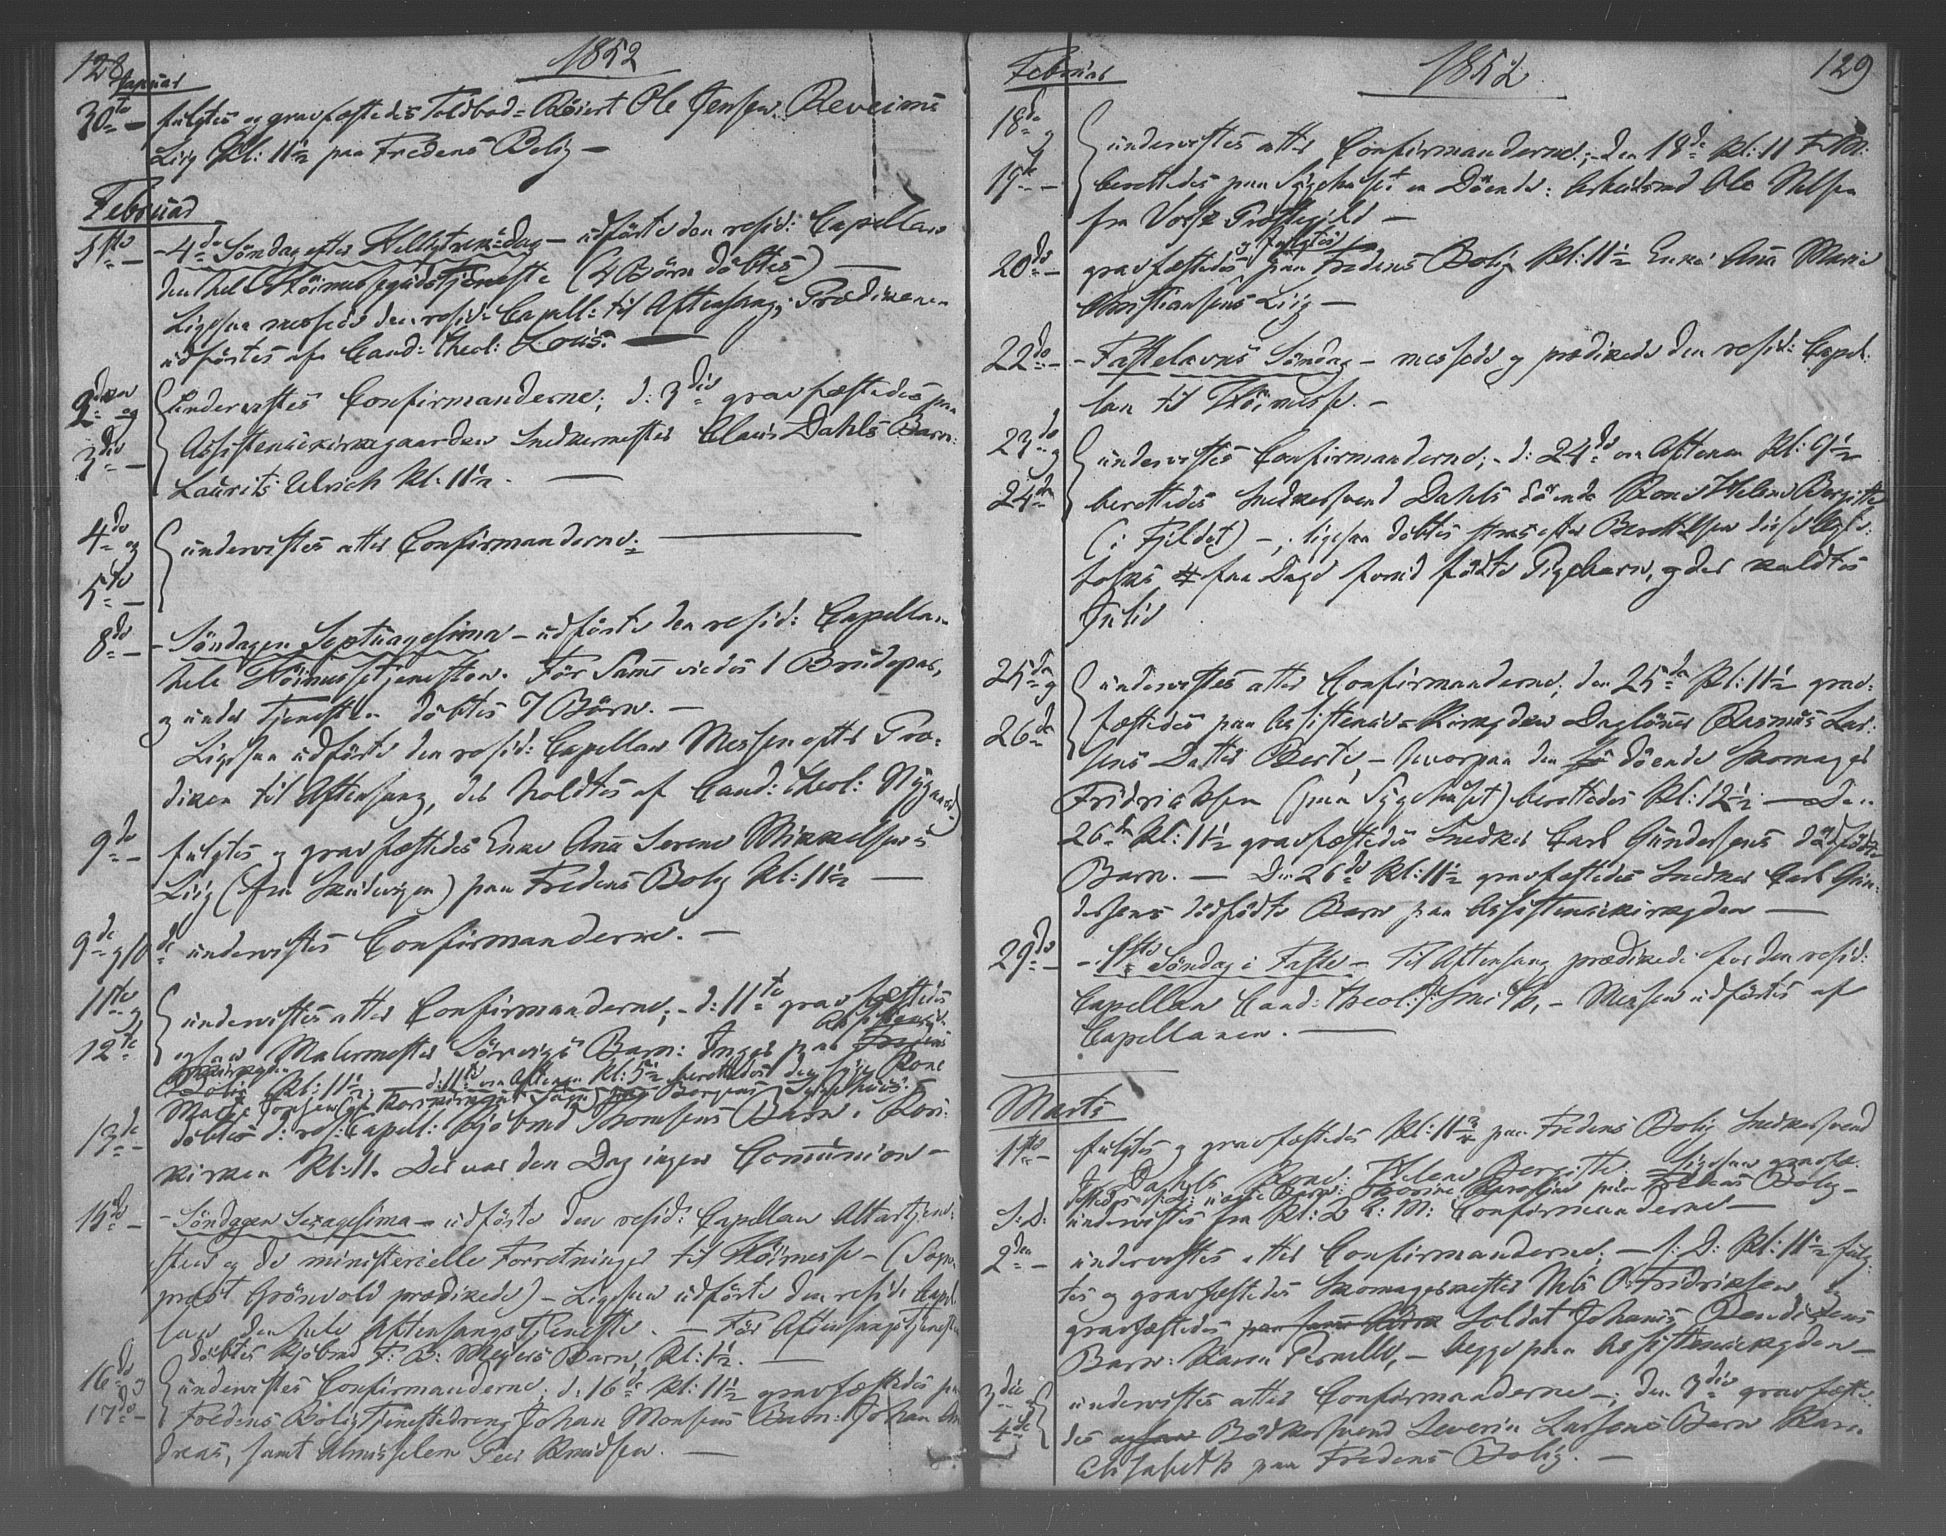 128
Januar
1852
30te – fulgtes og gravfæstedes Toldbod= Ole Jensen
Liig Kl: 11½ paa Fredens Bolig –
Februar
1ste – 4de Søndag efter Helligtrek:dag – udførte den resid: Capellan
den hele Høimessegudstjeneste (4 Børn døbtes) –
Ligesaa messede den resid: Capell: til Aftensang; Prædikenen
udførtes af Cand: theol: Louis. –
2den og
3die –
underviistes Confirmanderne; d: 3die gravfæstedes paa
Assistencekirkegaarden Snedkermester Claus Dahls Barn:
Laurits Ulrich Kl: 11½. –
4de og
5te –
underviistes atter Confirmanderne. –
8de – Søndagen Septuagesima – udførte den resid: Capellan
hele Høimessetjenesten. Før Samme viedes 1 Brudepar,
og under Tjenesten døbtes 7 Børn. –
Ligesaa udførte den resid: Capellan Messen efter Præ-
diken til Aftensang, der holdtes af Cand: theol: Nygaard
9de – fulgtes og gravfæstedes Enke Ana Serene Mikkelsens
Liig (fra Skudevigen) paa Fredens Bolig Kl: 11½ –
9de og 10de underviistes Confirmanderne. –
11te og
12te
underviistes atter Confirmanderne; – d: 11te gravfæstedes
Malermester Barn: Inger paa
Kl: 11½. – d: 11te om Aftenen Kl: 5 berettedes den syge Kone
13de – døbtes d: res: Capell: Kjøbmd Thomsens Barn i Kors-
kirken Kl: 11. Der var den Dag ingen Comunion –
15de – Søndagen Sexagesima – udførte den resid: Capellan Altertjene-
sten og de ministerielle Forretninger til Høimesse – (Sogne-
præst Grönvold prædikede) – Ligesaa udførte den resid: Capel-
lan den hele Aftensangs Tjeneste. – Før Aftensangstjenesten
døbtes Kjøbmd F: D: Meyers Barn, Kl: 1½. –
16de og
17de –
underviistes Confirmanderne; d: 16de Kl: 11½ gravfæstedes paa
Fredens Bolig Tjenestedreng Johan Monsens Barn: Johan An-
dreas, samt Almisselem Peer Knudsen. –
Februar
1852
129
18de og
19de –
underviistes atter Confirmanderne; – den 18de Kl: 11 F:M:
berettedes paa Sygehuset en Døende: Arbeidsmd Ole Nilsen
fra Vosse Præstegjeld –
20de – gravfæstedes og fulgtes paa Fredens Bolig Kl: 11½ Enke Ana Marie
Christiansens Liig –
22de – Fastelavns Søndag – messede og prædikede den resid: Capel-
lan til Høimesse. –
23de og
24de
underviistes Confirmanderne; – d: 24de om Aftenen Kl: 9½
berettedes Snedkersvend Dahls døende Kone Helene Bergitte
(: Fjeldet) –, ligesaa døbtes strax efter Berettelsen disse Ægte-
folks faa Dage forud fødte Pigebarn, og der kaldtes
Julie
25de og
26de
underviistes atter Confirmanderne; den 25de Kl: 11½ grav-
fæstedes paa Assistence-Kirkegden Daglønner Rasmus Lar-
sens Datter Berte, – hvorpaa den døende Skomager
Fridriksen (paa Sygehuset) berettedes Kl: 12½ – Den
26de Kl: 11½ gravfæstedes Snedker Carl Gundersens dødfødte
Barn. – Den 26de Kl: 11½ gravfæstedes Snedker Carl Gun-
dersens dødfødte Barn paa Assistencekirkegden –
29de – 1ste Søndag i Faste – Til Aftensang prædikede for den resid:
Capellan Cand: theol: J: Smith, – Messen udførtes af
Capellanen. –
Marts
1ste – fulgtes og gravfæstedes Kl: 11¾ paa Fredens Bolig Snedkersvend
Dahls Kone: Helene Bergitte. Ligesaa gravfæ-
stedes paa Fredens Bolig –
S: D: underviistes fra Kl: 2 E: M: Confirmanderne –
2den – underviistes atter Confirmanderne; – S: D: Kl: 11½ fulg-
tes og gravfæstedes Skomagermester Nils O: Fridriksen, og
gravfæstedes Soldat Johanes Bendixens
Barn: Karen Pernille, – begge paa Assistencekirkegden –
3die og
4de
underviistes atter Confirmanderne –; den 3die gravfæste-
des Bødkersvend Severin Larsens Barn Karen
Elisabeth paa Fredens Bolig. –